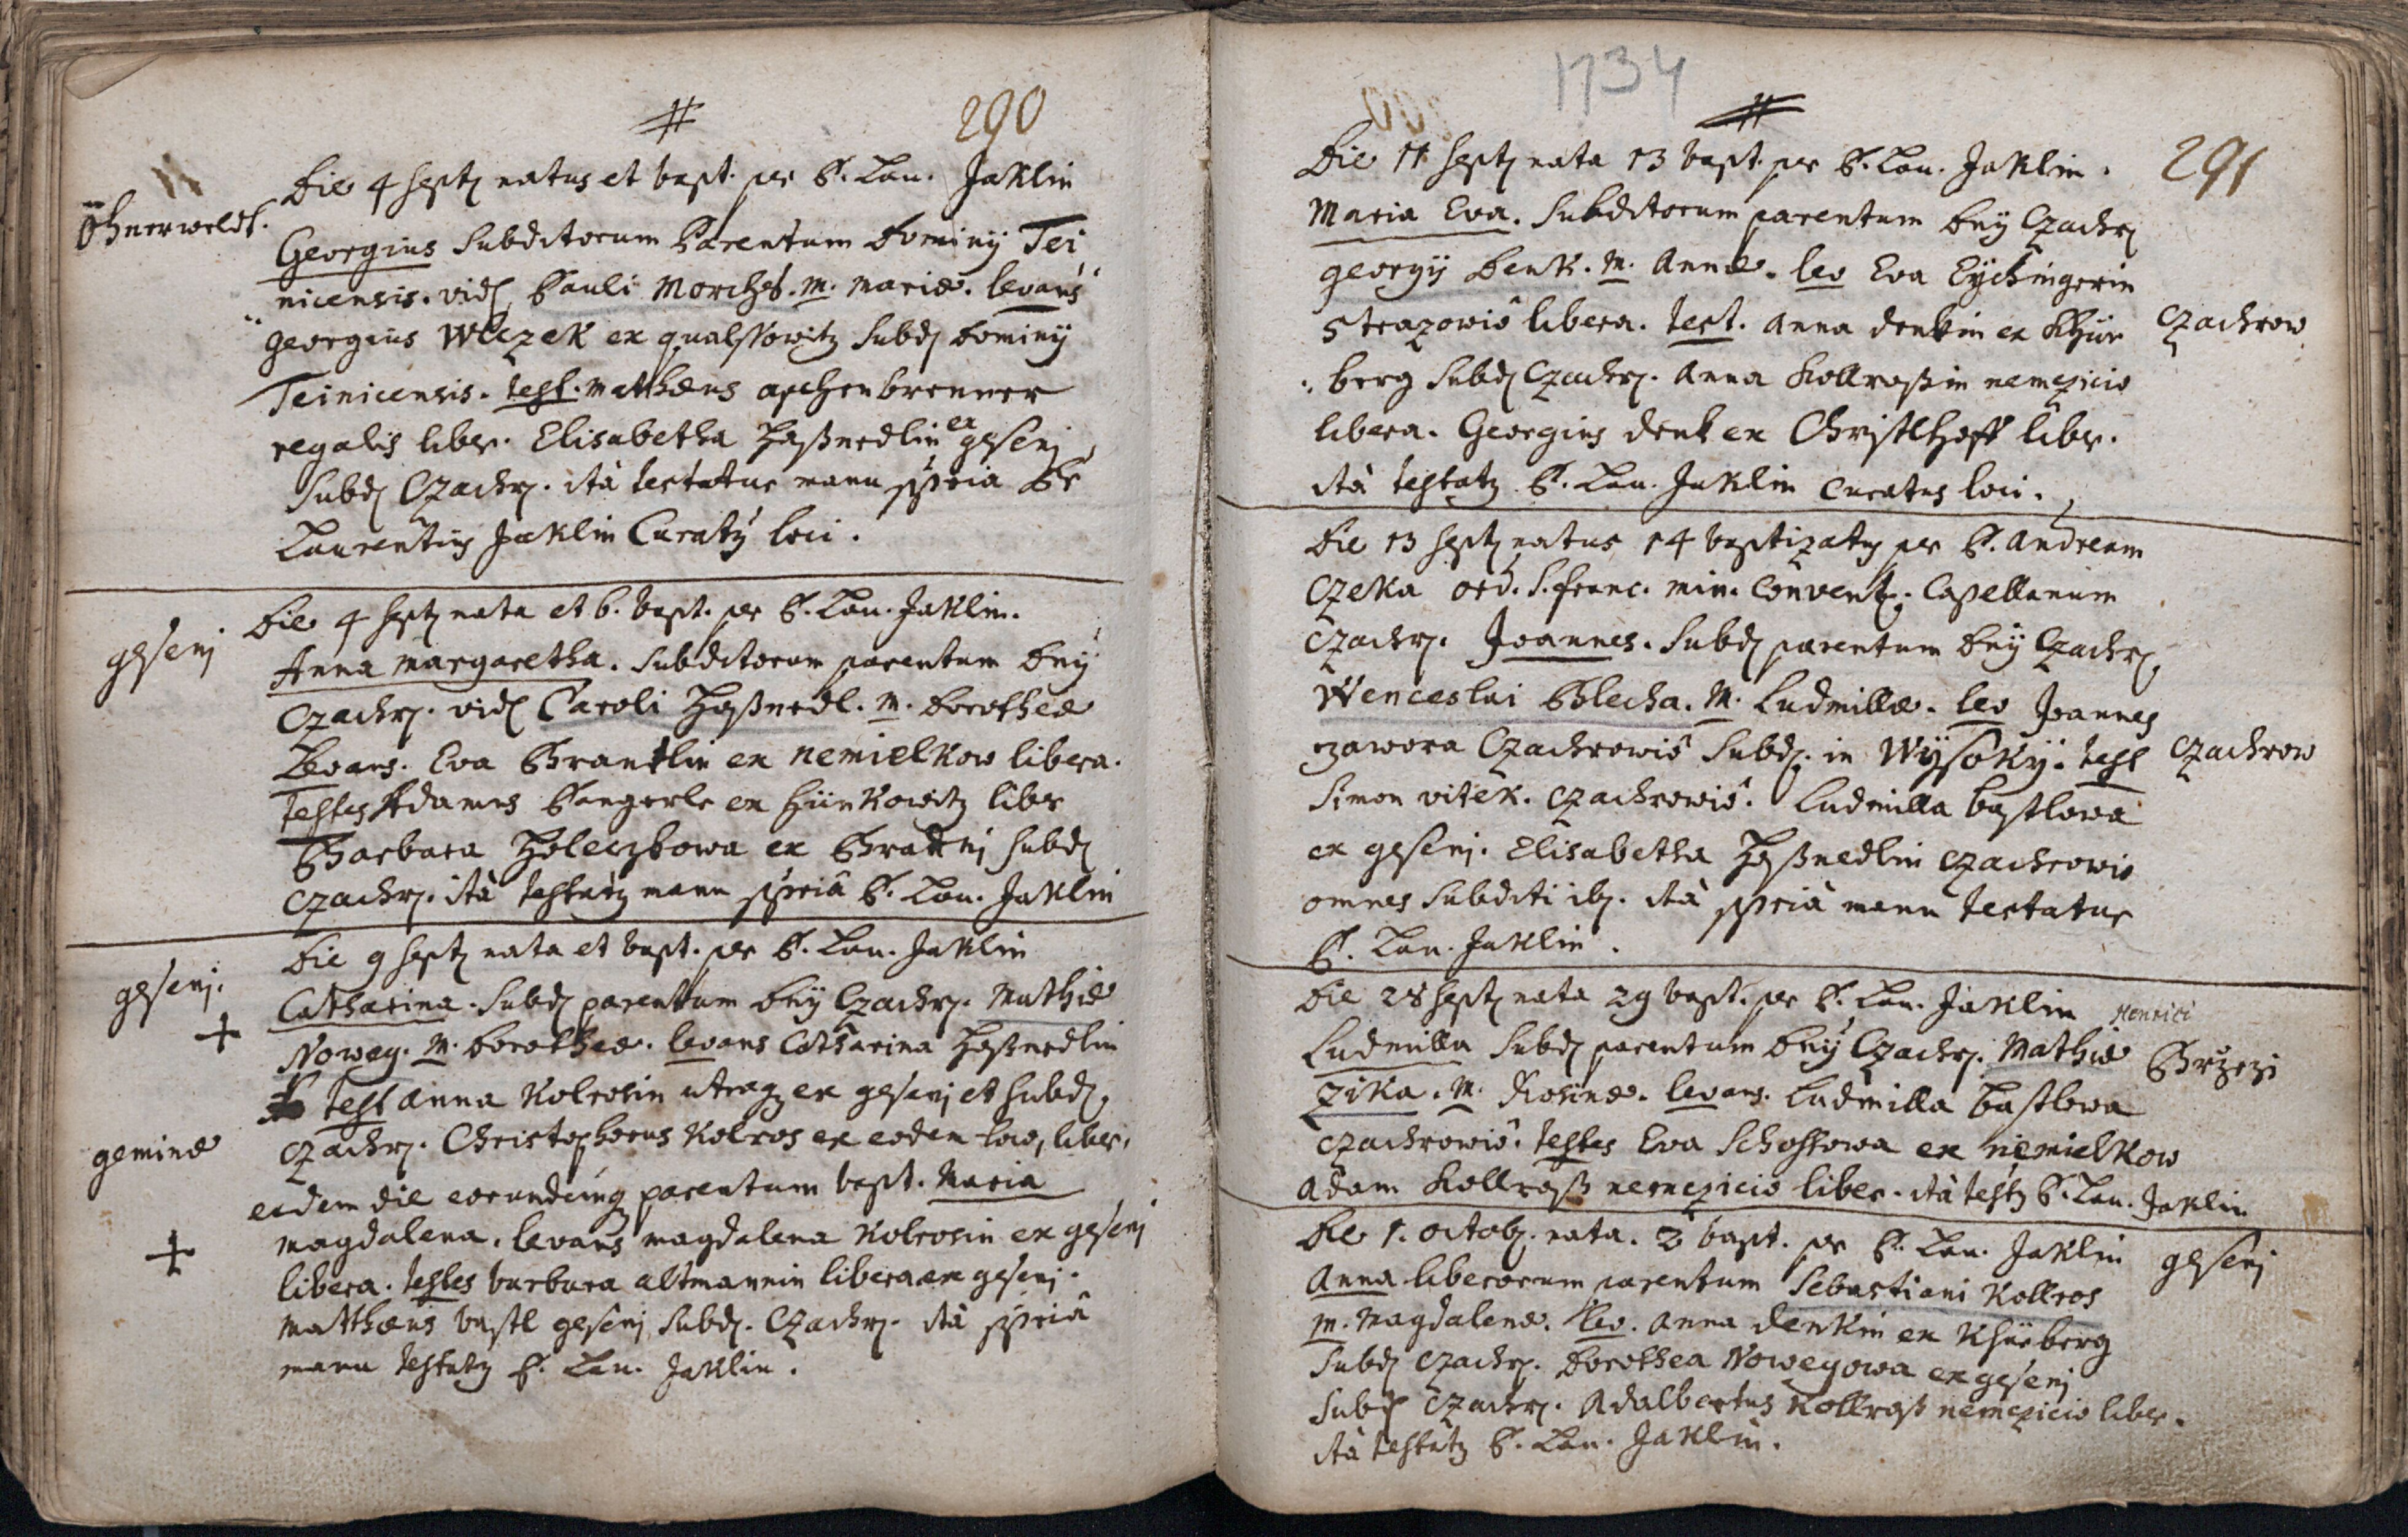 290
Öhnerweldt.
Die 4 Sept natus et bapt. per P. Lau. Jaklin
Georgius Subditorum Parentum Dominij Tei
nicensis. vid Pauli Morchß. M. Mariæ. levans
Georgius Wlczek ex qualssowitz Subd Dominij
Teinicensis. Test. Matthæus aschenbrenner
regalis liber. Elisabetha Hoßnedlin ex gesenj
Subd Czachr. ità testatur manu ppria Pr
Laurentius Jaklin Curatq loci.
gesenj
Die 4 Sept nata et b. bapt. per P. Lau. Jaklin.
Anna Margaretha. Subditorum parentum Dnij
Czachr. vid Caroli Hoßnedl. M. Dorotheæ
Levans. Eva Brantlin ex Nemielkow libera.
Testes Adamus Pangerle ex hünkowitz liber
Barbara Holeczkowa ex Bradnj Subd
Czachr. ità testatq manu ppriâ P. Lau. Jaklin
gesenj.
Die 9 Sept nata et bapt. per P. Lau. Jaklin
Catharina. Subd parentum Dnij Czachr. Mathiæ
Noweg. M. Dorotheæ. levans Catharina Hoßnedlin
Test Anna Kolrosin utraq ex gesenj et Subd.
geminæ
Czachr. Christophorus Kolros ex eodem loco, liber.
eodem die eorundemq parentum bapt. Maria
Magdalena. levans Magdalena Kolrosin ex gesenj
libera. Testes barbara altmannin libera ex gesenj.
Matthæus bastl gesenj Subd. Czachr. ità ppriâ
manu testatq P. Lau. Jaklin.
1734
291
Die 11 Sept nata 13 bapt. per P. Lau. Jaklin.
Maria Eva. Subditorum parentum Dnij Czachr
georgij Denk. M. Annæ. lev Eva Eychingerin
Strazowiô libera. Test. Anna denkin ex Khür
Czachrow
berg Subd Czachr. Anna Kollroßin nemczicio
libera. Georgius denk ex Christlhoff liber.
ità testatq P. Lau. Jaklin Curatus loci.
Die 13 Sept natus 14 baptizatq per P. Andream
Czeka ord. S. Franc. Min. Convent. Capellanum
Czachr. Joannes. Subd parentum Dnij Czachr.
Wenceslai Blecha. M. Ludmillæ. lev Joannes
zawora Czachrowiô Subd. in Wysoky. Test
Czachrow
Simon vitek. Czachrowiô. Ludmilla bastlowa
ex gesenj. Elisabetha Hoßnedlin Czachrowio
omnes Subditi ib. ità ppriâ manu testatur
P. Lau. Jaklin.
Die 28 Sept nata 29 bapt. per P. Lau. Jaklin
Henrici
Ludmilla Subd parentum Dnij Czachr. Mathiæ
Brzezi
Zika. M. Rosinæ. levans. Ludmilla Bastlowa
Czachrowiô. Testes Eva Schossowa ex Niemielkow
Adam Kollroß nemczicio liber. ità testq P. Lau. Jaklin
Die 1. octob. nata. 2 bapt. per P. Lau. Jaklin
gesenj
Anna liberorum parentum Sebastiani Kollros
M. Magdalenæ. lev. Anna Denkin ex Khürberg
Subd Czachr. Dorothea Nowegowa ex gesenj
Subd Czachr. Adalbertus Kollroß nemczicio liber.
ità testatq P. Lau. Jaklin.